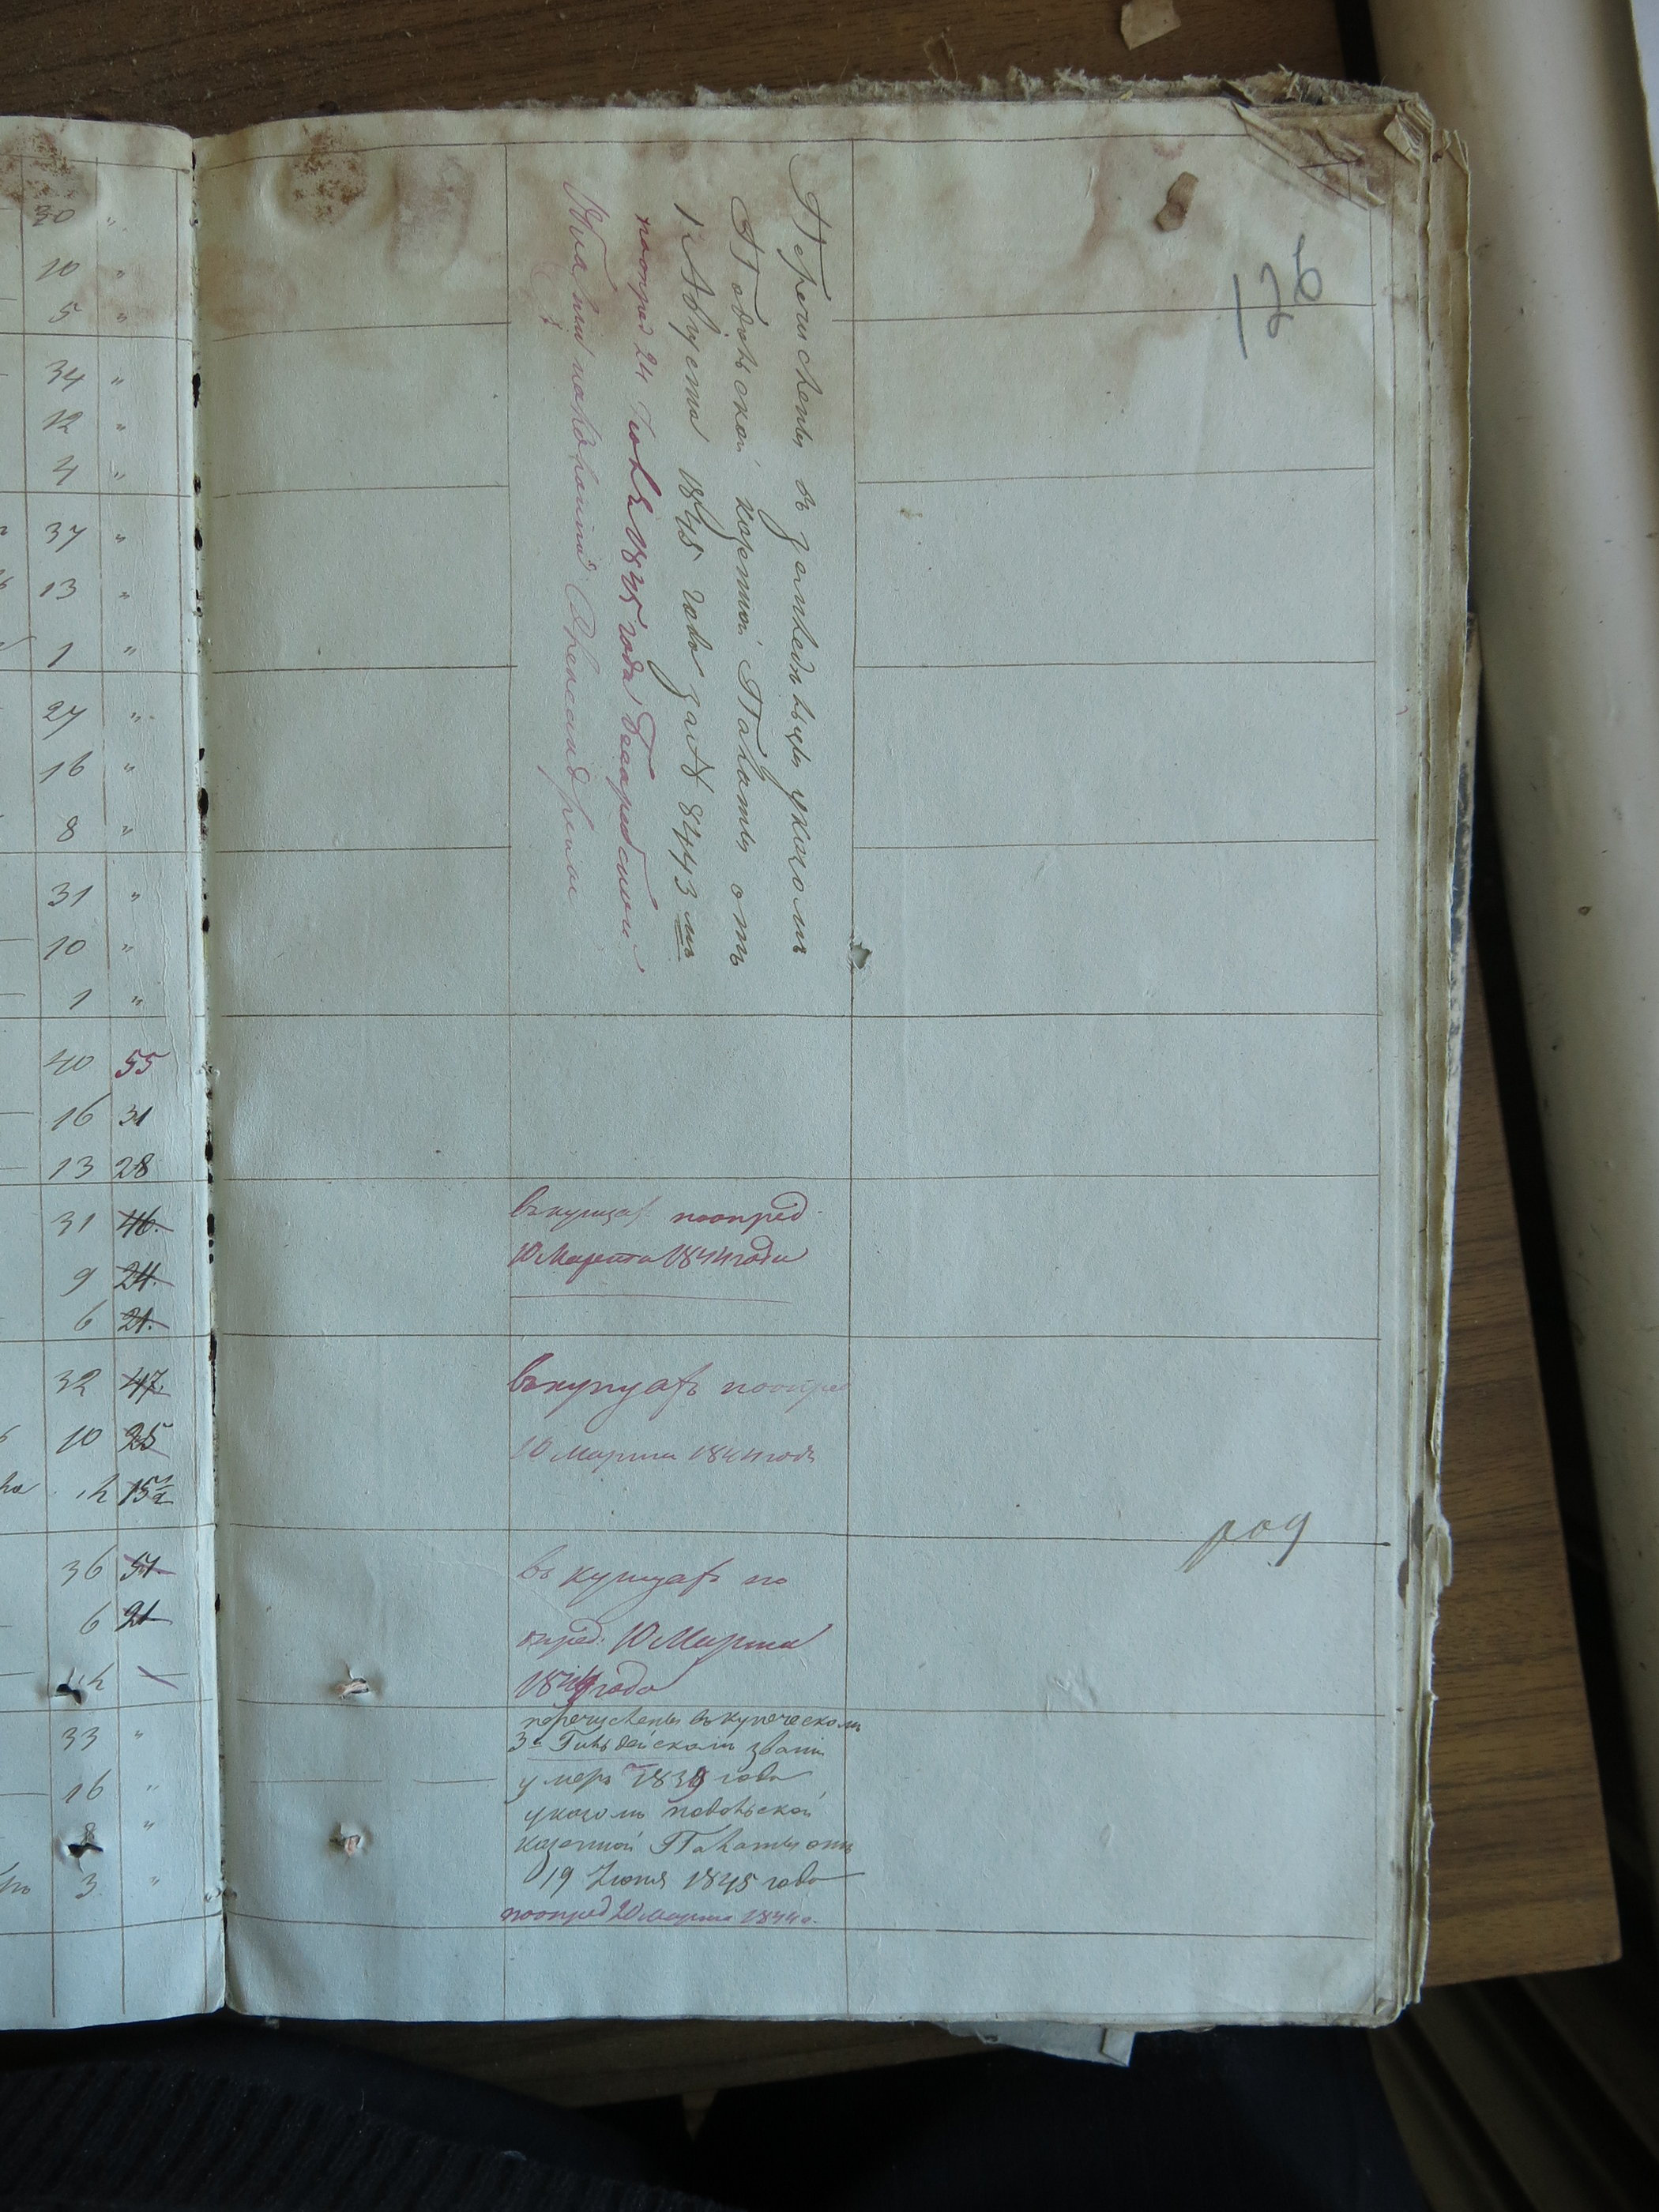 30 "
10 "
5 "
34 "
12 "
4 "
37 "
13 "
1 "
27 "
16 "
8 "
31 "
10 "
1 "
40 55
16 31
13 28
31 46.
9 24.
6 21.
32 47.
10 25
15½
36 51
6 21
33 "
16 "
8 "
3 "
Перечислены въ земледельцы указомъ
Подольской казенной Палаты отъ
1 Августа 1845 года за № 8443 мъ
поопред 24 Июля 1845 года
въ купцахъ поопред.
10 Марта 1844 года
въ купцахъ поопред
10 Марта 1844 года
въ купцахъ по
опред. 10 Марта
1844 года
перечислены въ купеческомъ
3й Гильдейскомъ званіи
умеръ 1839 года
указомъ подольской
казенной Палаты отъ
19 Июня 1845 года
поопред 20 марта 1844 г.
род